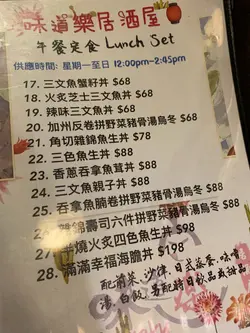 味道樂居酒屋
午餐定食 Lunch Set
供應時間: 星期一至日 12:00pm-2:45pm
17. 三文魚蟹籽丼 $68
18. 火炙芝士三文魚丼 $68
19. 辣味三文魚丼 $68
20. 加州反卷拼野菜豬骨湯烏冬 $68
21. 角切雜錦魚生丼 $88
22. 三色魚生丼 $88
23. 香蔥吞拿魚茸丼 $88
24. 三文魚親子丼 $88
25. 吞拿魚腩卷拼野菜豬骨湯烏冬 $88
錦壽司六件拼野菜豬骨湯烏冬 $88
燒火炙四色魚生丼 $98
28. 滿滿幸福海膽丼 $198
配前菜、沙律、日式蒸蛋、味噌
湯、白飯、另配時日飲品或甜品